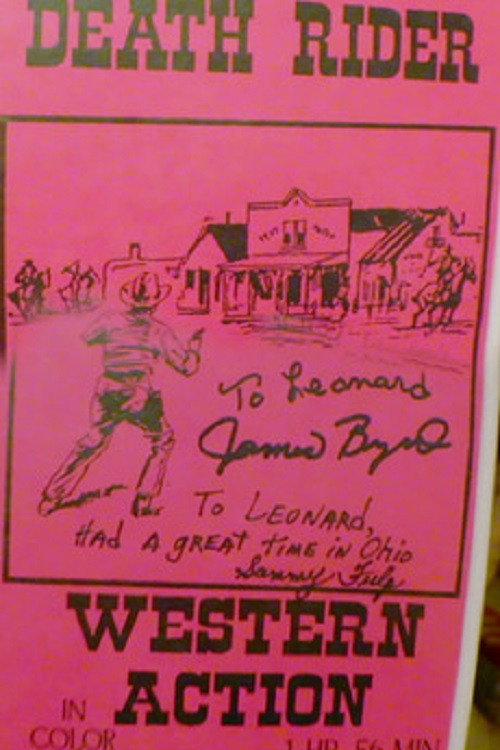 DEATH RIDER
To Leonard
James Byrd
To LEONARD,
HAd A gREAT TIME in Ohio
Sammy Fulp
WESTERN
ACTION
IN
COLOR
1 HR. 56 MIN